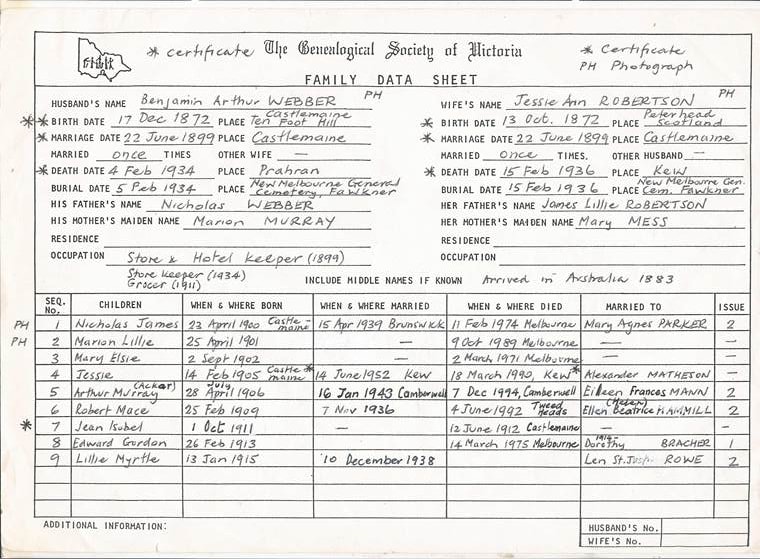 * certificate The Genealogical Society of Victoria * Certificate
PH Photograph
FAMILY DATA SHEET
HUSBAND'S NAME Benjamin Arthur WEBBER PH
** BIRTH DATE 17 Dec 1872 PLACE Castlemaine Ten Foot Hill
* MARRIAGE DATE 22 June 1899 PLACE Castlemaine
MARRIED once TIMES OTHER WIFE —
* DEATH DATE 4 Feb 1934 PLACE Prahran
BURIAL DATE 5 Feb 1934 PLACE New Melbourne General Cemetery, Fawkner
HIS FATHER'S NAME Nicholas WEBBER
HIS MOTHER'S MAIDEN NAME Marion MURRAY
RESIDENCE
OCCUPATION Store & Hotel Keeper (1899)
Store keeper (1934)
Grocer (1911)
WIFE'S NAME Jessie Ann ROBERTSON PH
* BIRTH DATE 13 Oct. 1872 PLACE Peterhead Scotland
* MARRIAGE DATE 22 June 1899 PLACE Castlemaine
MARRIED once TIMES. OTHER HUSBAND —
* DEATH DATE 15 Feb 1936 PLACE Kew
BURIAL DATE 15 Feb 1936 PLACE New Melbourne Gen. Cem. Fawkner
HER FATHER'S NAME James Lillie ROBERTSON
HER MOTHER'S MAIDEN NAME Mary MESS
RESIDENCE
OCCUPATION
INCLUDE MIDDLE NAMES IF KNOWN Arrived in Australia 1883
SEQ. No. CHILDREN WHEN & WHERE BORN WHEN & WHERE MARRIED WHEN & WHERE DIED MARRIED TO ISSUE
PH 1 Nicholas James 23 April 1900 Castlemaine 15 Apr 1939 Brunswick 11 Feb 1974 Melbourne Mary Agnes PARKER 2
PH 2 Marion Lillie 25 April 1901 — 9 Oct 1989 Melbourne — —
3 Mary Elsie 2 Sept 1902 — 2 March 1971 Melbourne — —
4 Jessie 14 Feb 1905 Castlemaine * 14 June 1952 Kew 18 March 1990, Kew * Alexander MATHESON —
5 Arthur Murray (Acker) 28 July April 1906 16 Jan 1943 Camberwell 7 Dec 1994, Camberwell Eileen Frances MANN 2
6 Robert Mace 25 Feb 1909 7 Nov 1936 4 June 1992 Tweed Heads Ellen (Helen) Beatrice HAMMILL 2
* 7 Jean Isobel 1 Oct 1911 — 12 June 1912 Castlemaine — —
8 Edward Gordon 26 Feb 1913 14 March 1975 Melbourne 1914- Dorothy BRACHER 1
9 Lillie Myrtle 13 Jan 1915 10 December 1938 Len St. ROWE 2
ADDITIONAL INFORMATION:
HUSBAND'S No.
WIFE'S No.